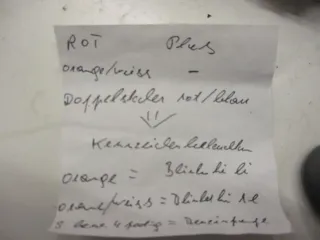 ROT Plus
orange/weiss –
Doppelstecker rot/blau
⇓
Kennzeichenbeleuchten
orange = Blinker hi li
orange/weiss = Blinker hi re
4 polig =